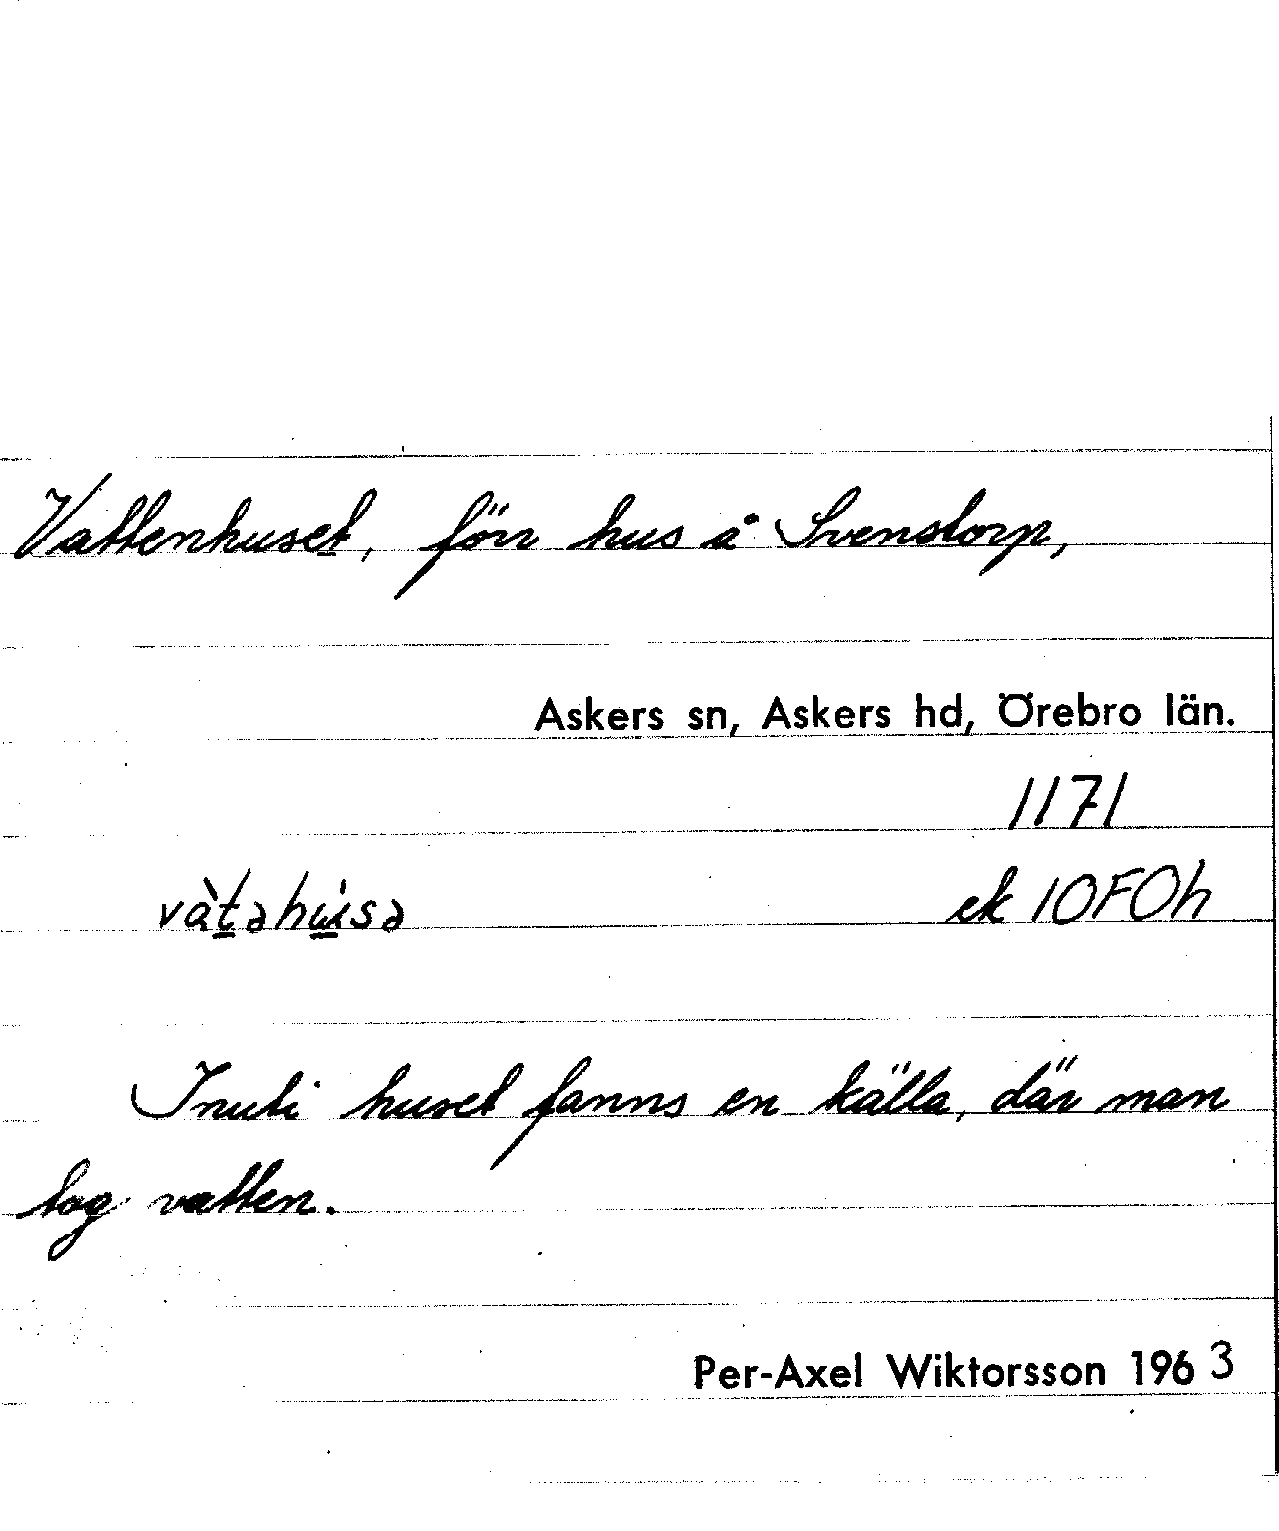 Vattenhuset, förr hus å Svenstorp,
Askers sn, Askers hd, Örebro län.
1171
vàtəhúsə ek 10F0h
Inuti huset fanns en källa, där man
tog vatten.
Per-Axel Wiktorsson 1963